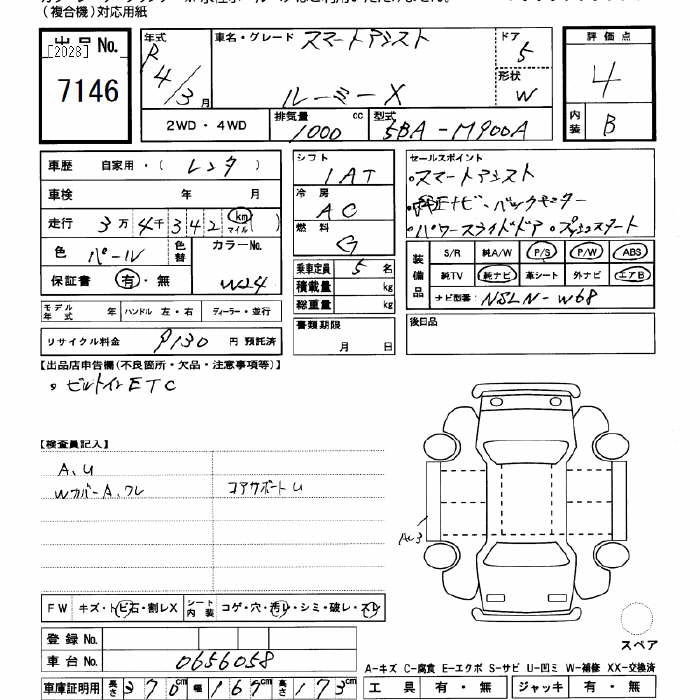 (複合機)対応用紙
出品 No.
[2028]
7146
年式 R 4/3 月
車名・グレード スマートアシスト
ルーミー X
ドア 5
形状 W
評価点 4
内装 B
2WD・4WD
排気量 1000 cc
型式 5BA-M900A
車歴 自家用・(レンタ)
車検 年 月
走行 3万4千342 km マイル ( )
色 パール
色替
カラーNo. W24
保証書 有・無
モデル年式 年 ハンドル 左・右 ディーラー・並行
リサイクル料金 9130 円 預託済
シフト IAT
冷房 AC
燃料 G
乗車定員 5 名
積載量 kg
総重量 kg
書類期限
月 日
セールスポイント
・スマートアシスト
・純正ナビ・バックモニター
・パワースライドドア・プッシュスタート
装備品
S/R 純A/W P/S P/W ABS
純TV 純ナビ 革シート 外ナビ エアB
ナビ型番 NSLN-W68
後日品
【出品店申告欄(不良箇所・欠品・注意事項等)】
・ビルトインETC
【検査員記入】
A、U
Wカバー A、ワレ
コアサポートU
A3
FW キズ・トビ石・割レX
シート内装 コゲ・穴・汚レ・シミ・破レ・スレ
登録 No.
車台 No. 0656058
車庫証明用 長さ 370cm 幅 167cm 高さ 173cm
スペア
A-キズ C-腐食 E-エクボ S-サビ U-凹ミ W-補修 XX-交換済
工具 有・無 ジャッキ 有・無